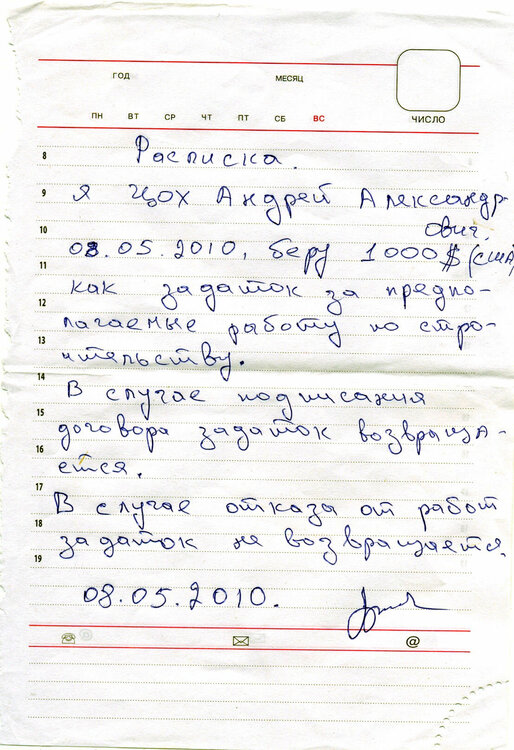 ГОД МЕСЯЦ
ПН ВТ СР ЧТ ПТ СБ ВС ЧИСЛО
8 Расписка.
9 Я Цох Андрей Александр-
ович
10 08.05.2010, беру 1000$ (США)
11 как задаток за предпо-
12 лагаемые работу по стро-
13 ительству.
14 В случае подписания
15 договора задаток возвраща-
16 ется.
17 В случае отказа от работ
18 задаток не возвращается.
19
08.05.2010.
@